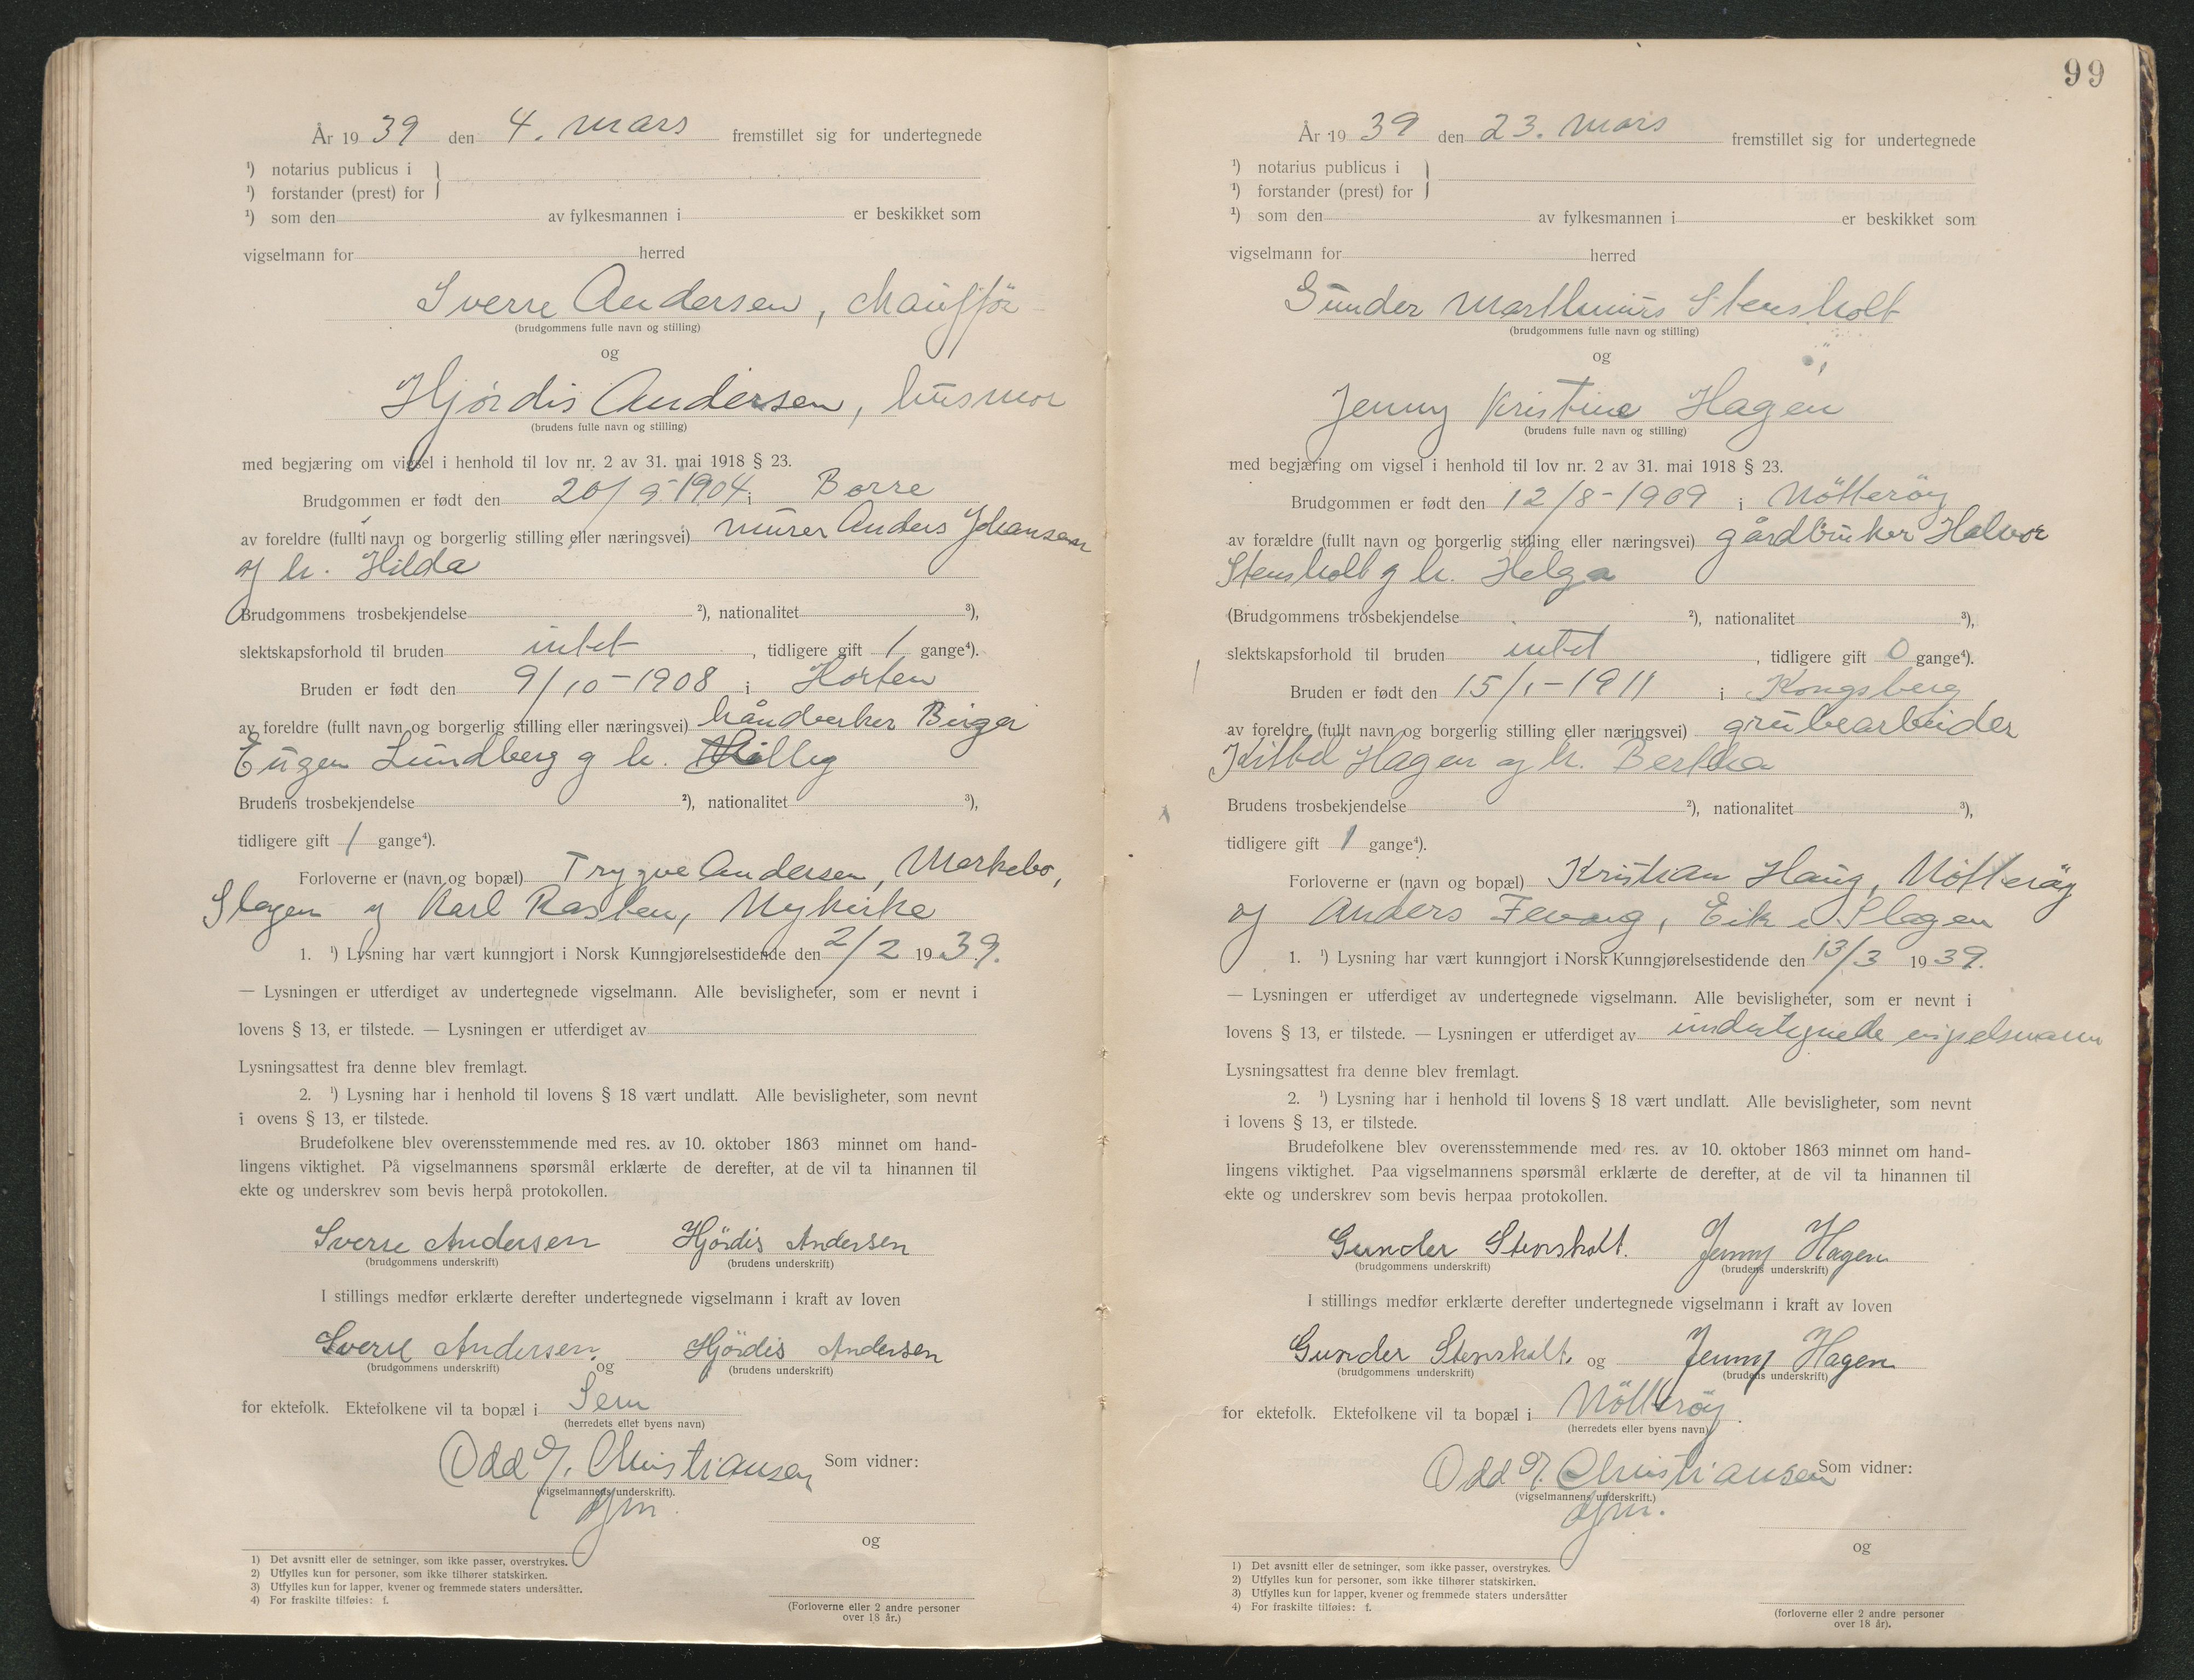 År 19 39 den 4. mars fremstillet sig for undertegnede
¹) notarius publicus i
¹) forstander (prest) for
¹) som den av fylkesmannen i er beskikket som
vigselmann for herred
Sverre Andersen, chauffør
(brudgommens fulle navn og stilling)
og
Hjørdis Andersen, husmor
(brudens fulle navn og stilling)
med begjæring om vigsel i henhold til lov nr. 2 av 31. mai 1918 § 23.
Brudgommen er født den 20/9-1904 i Borre
av foreldre (fullt navn og borgerlig stilling eller næringsvei) murer Anders Johansen
og h. Hilda
Brudgommens trosbekjendelse ²), nationalitet ³),
slektskapsforhold til bruden intet, tidligere gift 1 gange⁴).
Bruden er født den 9/10-1908 i Horten
av foreldre (fullt navn og borgerlig stilling eller næringsvei) håndverker Birger
Eugen Lundberg og h.
Brudens trosbekjendelse ²), nationalitet ³),
tidligere gift 1 gange⁴).
Forloverne er (navn og bopæl) Trygve Andersen, Merkebo,
Slagen og Karl Rasten, Nykirke
1. ¹) Lysning har vært kunngjort i Norsk Kunngjørelsestidende den 2/2 1939.
— Lysningen er utferdiget av undertegnede vigselmann. Alle bevisligheter, som er nevnt i
lovens § 13, er tilstede. — Lysningen er utferdiget av
Lysningsattest fra denne blev fremlagt.
2. ¹) Lysning har i henhold til lovens § 18 vært undlatt. Alle bevisligheter, som nevnt
i ovens § 13, er tilstede.
Brudefolkene blev overensstemmende med res. av 10. oktober 1863 minnet om hand-
lingens viktighet. På vigselmannens spørsmål erklærte de derefter, at de vil ta hinannen til
ekte og underskrev som bevis herpå protokollen.
Sverre Andersen Hjördis Andersen
(brudgommens underskrift) (brudens underskrift)
I stillings medfør erklærte derefter undertegnede vigselmann i kraft av loven
Sverre Andersen. og Hjördis Andersen
(brudgommens underskrift) (brudens underskrift)
for ektefolk. Ektefolkene vil ta bopæl i Sem
(herredets ellet byens navn)
Odd J. Christiansen Som vidner:
(vigselmannens underskrift).
og
1) Det avsnitt eller de setninger, som ikke passer, overstrykes.
2) Utfylles kun for personer, som ikke tilhører statskirken.
3) Utfylles kun for lapper, kvener og fremmede staters undersåtter.
4) For fraskilte tilføies: f.
(Forloverne eller 2 andre personer
over 18 år.)
99
År 19 39 den 23. mars fremstillet sig for undertegnede
¹) notarius publicus i
¹) forstander (prest) for
¹) som den av fylkesmannen i er beskikket som
vigselmann for herred
Gunder Marthinius Stensholt
(brudgommens fulle navn og stilling)
og
Jenny Kristine Hagen
(brudens fulle navn og stilling)
med begjæring om vigsel i henhold til lov nr. 2 av 31. mai 1918 § 23.
Brudgommen er født den 12/8-1909 i Nötteröy
av forældre (fullt navn og borgerlig stilling eller næringsvei) gårdbruker Halvor
Stensholt og h. Helga
(Brudgommens trosbekjendelse ²), nationalitet ³),
slektskapsforhold til bruden intet, tidligere gift 0 gange⁴).
Bruden er født den 15/1-1911 i Kongsberg
av foreldre (fullt navn og borgerlig stilling eller næringsvei) grubearbeider
Kittel Hagen og h. Bertha
Brudens trosbekjendelse ²), nationalitet ³),
tidligere gift 1 gange⁴).
Forloverne er (navn og bopæl) Kristian Haug, Nötteröy
og Anders Fevang, Eik i Slagen
1. ¹) Lysning har vært kunngjort i Norsk Kunngjørelsestidende den 13/3 1939.
— Lysningen er utferdiget av undertegnede vigselmann. Alle bevisligheter, som er nevnt i
lovens § 13, er tilstede. — Lysningen er utferdiget av undertegnede vigselsmann
Lysningsattest fra denne blev fremlagt.
2. ¹) Lysning har i henhold til lovens § 18 vært undlatt. Alle bevisligheter, som nevnt
i lovens § 13, er tilstede.
Brudefolkene blev overensstemmende med res. av 10. oktober 1863 minnet om hand-
lingens viktighet. Paa vigselmannens spørsmål erklærte de derefter, at de vil ta hinannen til
ekte og underskrev som bevis herpaa protokollen.
Gunder Stensholt. Jenny Hagen
(brudgommens underskrift) (brudens underskrift)
I stillings medfør erklærte derefter undertegnede vigselmann i kraft av loven
Gunder Stensholt. og Jenny Hagen
(brudgommens underskrift) (brudens underskrift)
for ektefolk. Ektefolkene vil ta bopæl i Nötteröy.
(herredets eller byens navn)
Odd J. Christiansen Som vidner:
(vigselmannens underskrift.)
og
1) Det avsnitt eller de setninger, som ikke passer, overstrykes.
2) Utfylles kun for personer, som ikke tilhører statskirken.
3) Utfylles kun for lapper, kvener og fremmede staters undersåtter
4) For fraskilte tilføies: f.
(forloverne eller 2 andre personer
over 18 år).